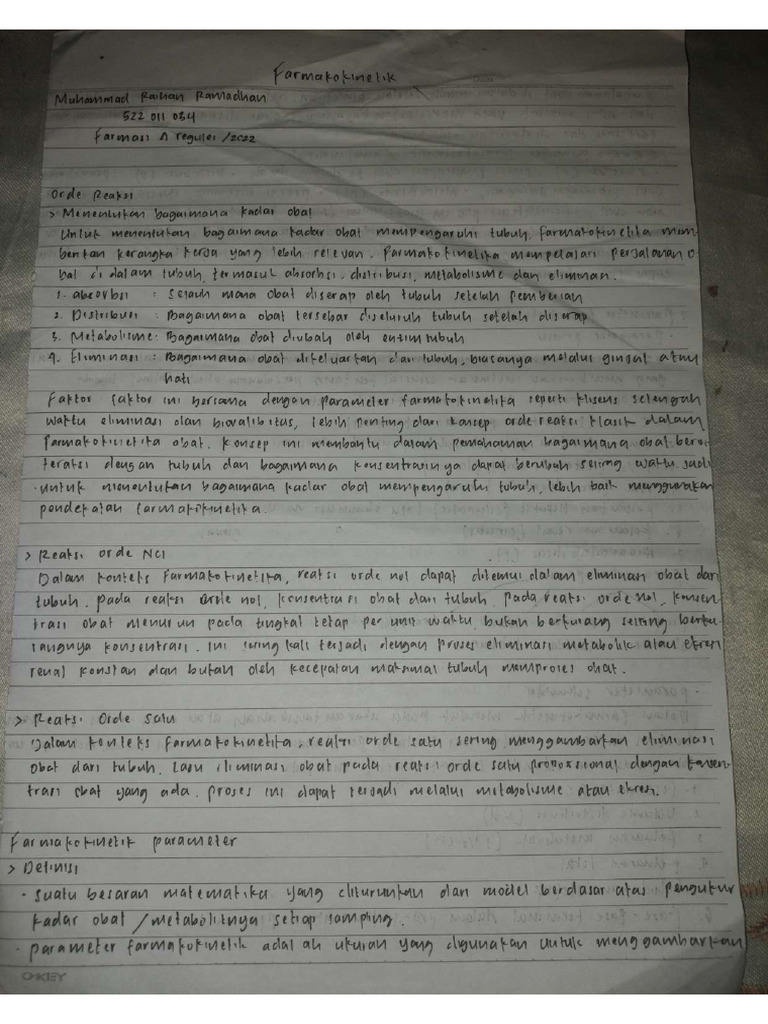 Farmakokinetik
Muhammad Raihan Ramadhan
522 011 034
Farmasi A reguler /2022
Orde Reaksi
> Menentukan bagaimana kadar obat
Untuk menentukan bagaimana kadar obat mempengaruhi tubuh, farmakokinetika mem
berikan kerangka kerja yang lebih relevan. Farmakokinetika mempelajari perjalanan o
bat di dalam tubuh, termasuk absorbsi, distribusi, metabolisme dan eliminasi.
1. absorbsi : Sejauh mana obat diserap oleh tubuh setelah pemberian
2. Distribusi : Bagaimana obat tersebar diseluruh tubuh setelah diserap
3. Metabolisme : Bagaimana obat diubah oleh enzim tubuh
4. Eliminasi : Bagaimana obat dikeluarkan dari tubuh, biasanya melalui ginjal atau
hati
Faktor faktor ini bersama dengan parameter farmakokinetika seperti klirens setengah
waktu eliminasi dan bioavalibitas, lebih penting dari konsep orde reaksi klasik dalam
farmakokinetika obat. Konsep ini membantu dalam pemahaman bagaimana obat berin
teraksi dengan tubuh dan bagaimana konsentrasinya dapat berubah seiring waktu. Jadi
untuk menentukan bagaimana kadar obat mempengaruhi tubuh, lebih baik menggunakan
pendekatan farmakokinetika.
> Reaksi Orde Nol
Dalam konteks farmakokinetika, reaksi orde nol dapat ditemui dalam eliminasi obat dari
tubuh. pada reaksi orde nol, konsentrasi obat dari tubuh. Pada reaksi orde nol, konsen
trasi obat menurun pada tingkat tetap per unit waktu, bukan berkurang seiring berku
rangnya konsentrasi. Ini sering kali terjadi dengan proses eliminasi metabolik atau ekresi
renal konstan dan bukan oleh kecepatan maksimal tubuh memproses obat.
> Reaksi Orde Satu
Dalam konteks farmakokinetika, reaksi orde satu sering menggambarkan eliminasi
obat dari tubuh. Laju eliminasi obat pada reaksi orde satu proporsional dengan konsen-
trasi obat yang ada. proses ini dapat terjadi melalui metabolisme atau ekresi.
Farmakokinetik parameter
> Definisi
- suatu besaran matematika yang diturunkan dari model berdasar atas pengukur
kadar obat / metabolitnya setiap sampling.
- parameter farmakokinetik adalah ukuran yang digunakan untuk menggambarkan
O-KEY